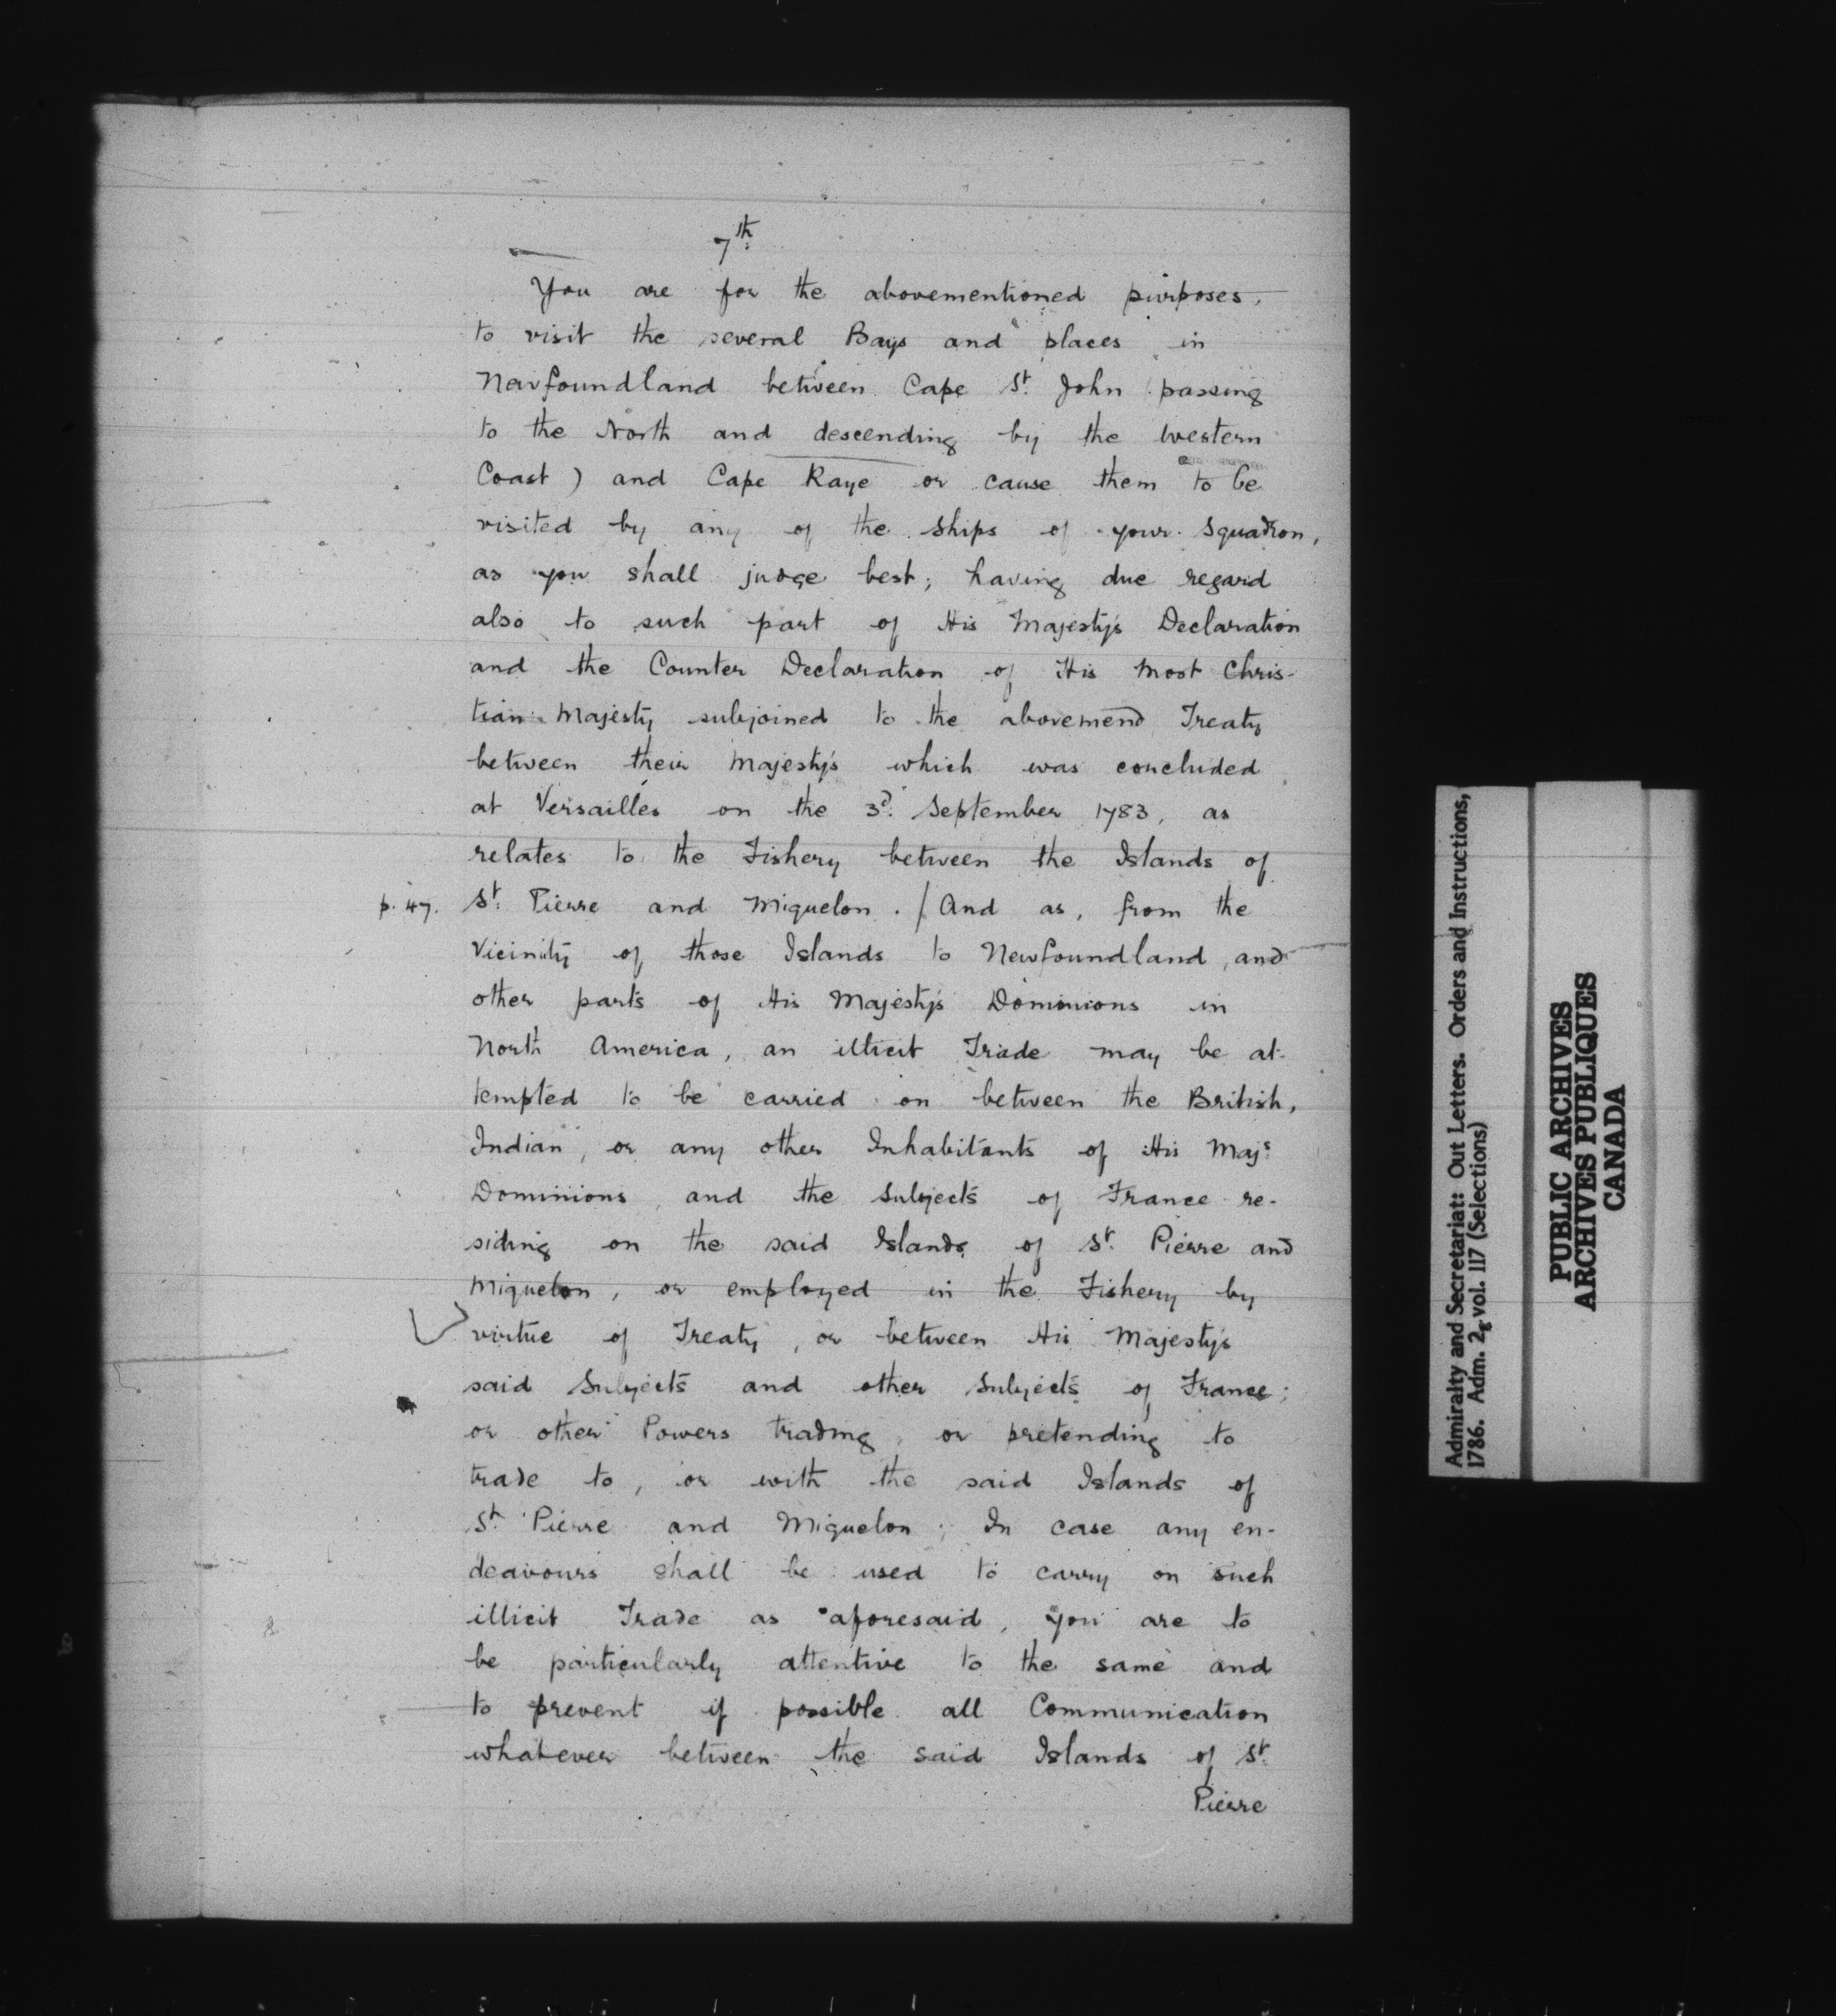 7th.
You are for the abovementioned purposes,
to visit the several Bays and places in
Newfoundland between Cape St. John (passing
to the North and descending by the Western
Coast) and Cape Raye or cause them to be
visited by any of the Ships of your Squadron,
as you shall judge best; having due regard
also to such part of His Majesty's Declaration
and the Counter Declaration of His Most Chris-
tian Majesty subjoined to the abovemend Treaty
between their Majesty's which was concluded
at Versailles on the 3d. September 1783, as
relates to the Fishery between the Islands of
p. 47. St. Pierre and Miquelon. / And as, from the
Vicinity of those Islands to Newfoundland, and
other parts of His Majesty's Dominions in
North America, an illicit Trade may be at-
tempted to be carried on between the British,
Indian, or any other Inhabitants of His Majs.
Dominions, and the Subjects of France re-
siding on the said Islands of St. Pierre and
Miquelon, or employed in the Fishery by
virtue of Treaty, or between His Majesty's
said Subjects and other Subjects of France;
or other Powers trading, or pretending to
trade to, or with the said Islands of
St. Pierre and Miquelon; In case any en-
deavours shall be used to carry on such
illicit Trade as aforesaid, you are to
be particularly attentive to the same and
to prevent if possible all Communication
whatever between the said Islands of St.
Pierre
Admiralty and Secretariat: Out Letters. Orders and Instructions,
1786. Adm. 2, vol. 117 (Selections)
PUBLIC ARCHIVES
ARCHIVES PUBLIQUES
CANADA